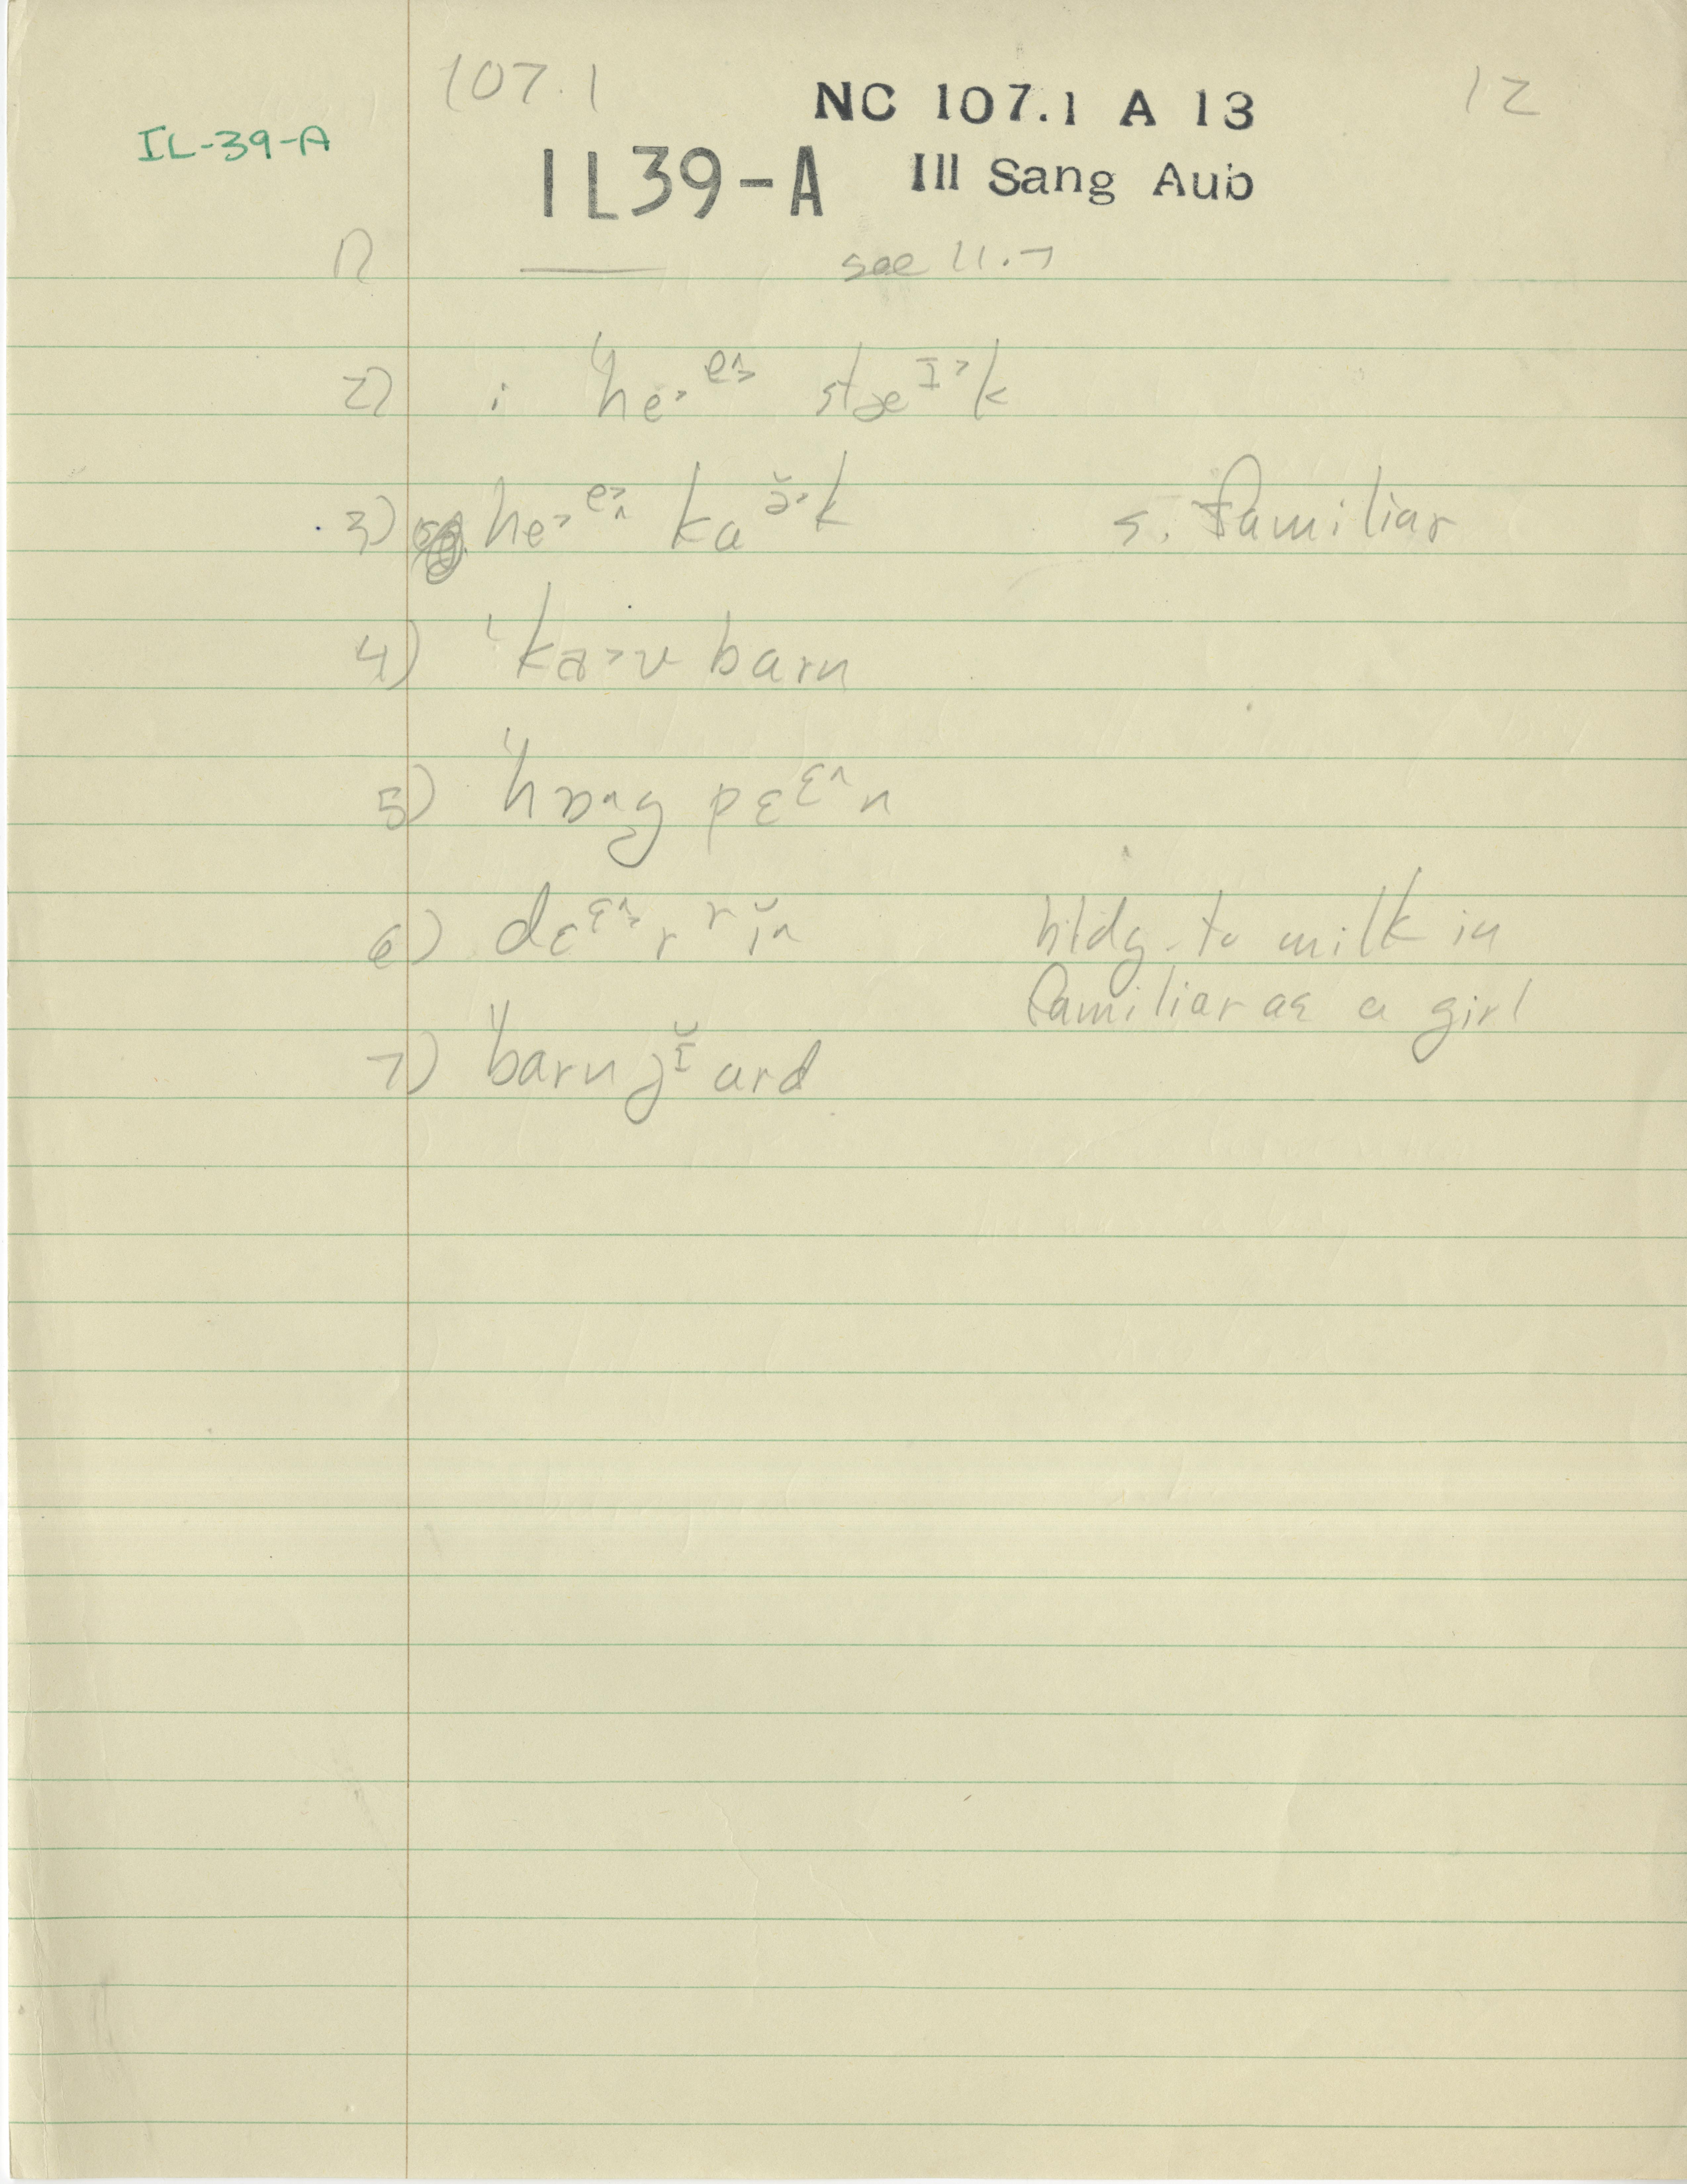 107.1 NC 107.1 A 13 12
IL-39-A IL39-A Ill Sang Aub
1) —— see 11.7
2) i ˈhe˃ᵉ stæᶦ˃k
3) he˃ᵉ kaə̆˃k s. familiar
4) ˈka˃ʊ barn
5) ˈhɒ˄g pɛᵋ˄n
6) dɛᵋr rĭ˄n bldg. to milk in
familiar as a girl
7) ˈbarn jĭard